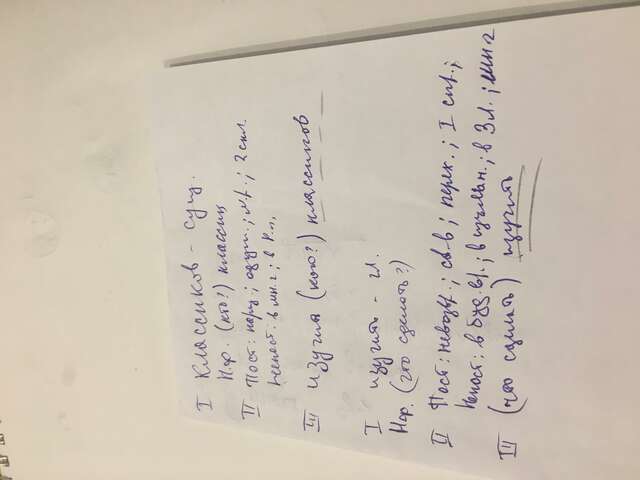 I Классиков - сущ.
Н.ф. (кто?) классик
II Пост: нариц; одуш.; м.р.; 2 скл.
Непост: в мн.ч; в Р.п.,
III изучил (кого?) классиков
I изучить - гл.
Н.ф. (что сделать?)
II Пост: невозвр.; св-в; перех.; I спр.;
Непост: в буд.вр.; в изъяв.н.; в 3 л.; мн.ч
III (что сделать) изучить